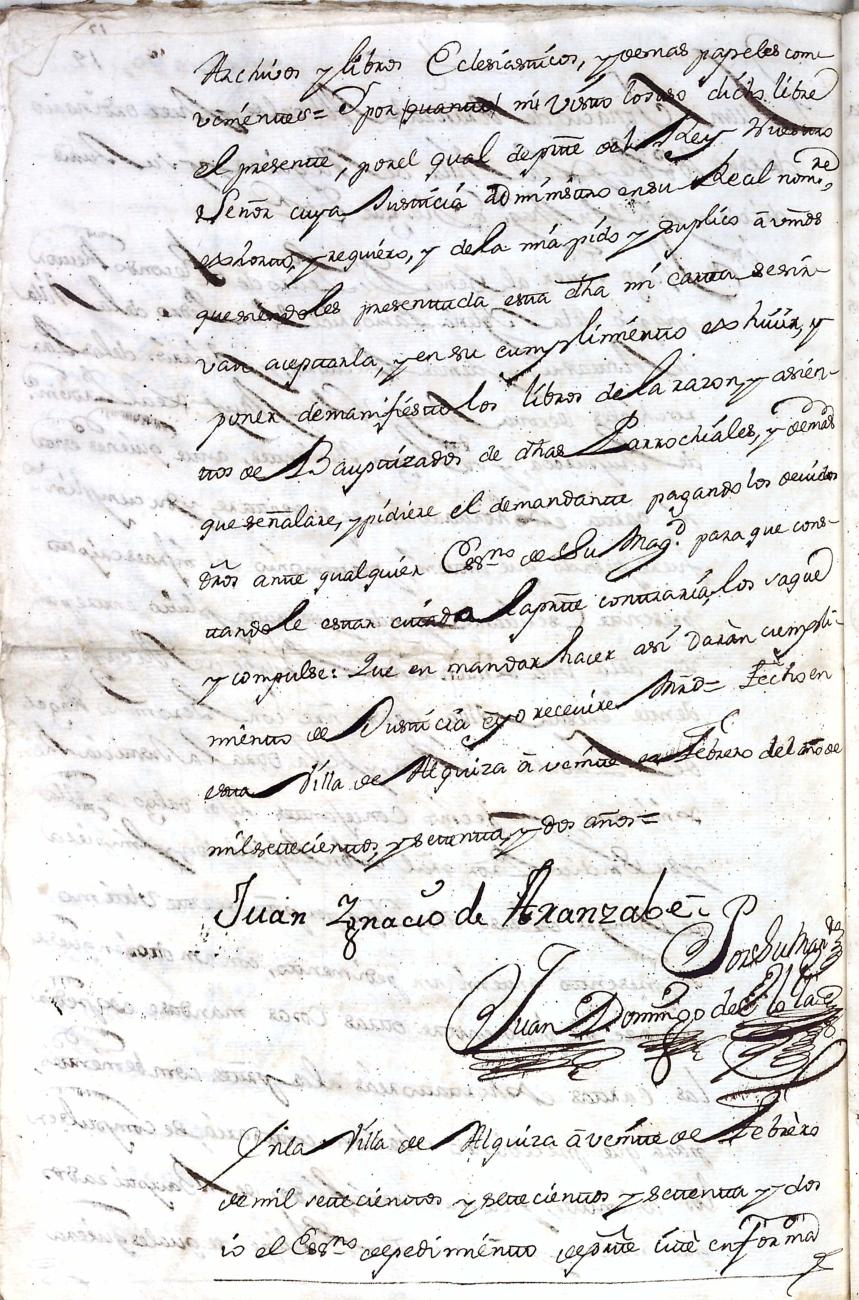 Archivos y libros Eclesiasticos, y demas papeles com-
venientes= Y por mi visto lo suso dicho libre
el presente, por el qual de pᵗᵉ del Rey Nuestro
Señor cuya Justicia administro en su Real nomᵇʳᵉ
exorto, y requiero, y de la mia pido y suplico à vmdes
que siendoles presentada esta dha mi carta se sir-
van aceptarla, y en su cumplimiento exhivir, y
poner de manifiesto los libros de la razon y asien-
tos de Bauptizados de dhas Parrochiales, y demas
que señalare, y pidiere el demandante pagando los devidos
dros ante qualquier Essⁿᵒ de Su Magᵈ para que cons-
tandole estar citada la parte contraria, los saque
y compulse: Que en mandar hacer asi daràn cumpli-
miento de Justicia è yo recevire Mrd= Fecho en
esta Villa de Alquiza à veinte de Febrero del año de
mil setecientos, y setenta, y dos años=
Juan Ygnacio de Aranzabe
Por su Manᵈᵒ
Juan Domingo de
En la Villa de Alquiza à veinte de Febrero
de mil setecientos y setecientos y setenta y dos
io el Essⁿᵒ de pedimiento de parte citè en forma